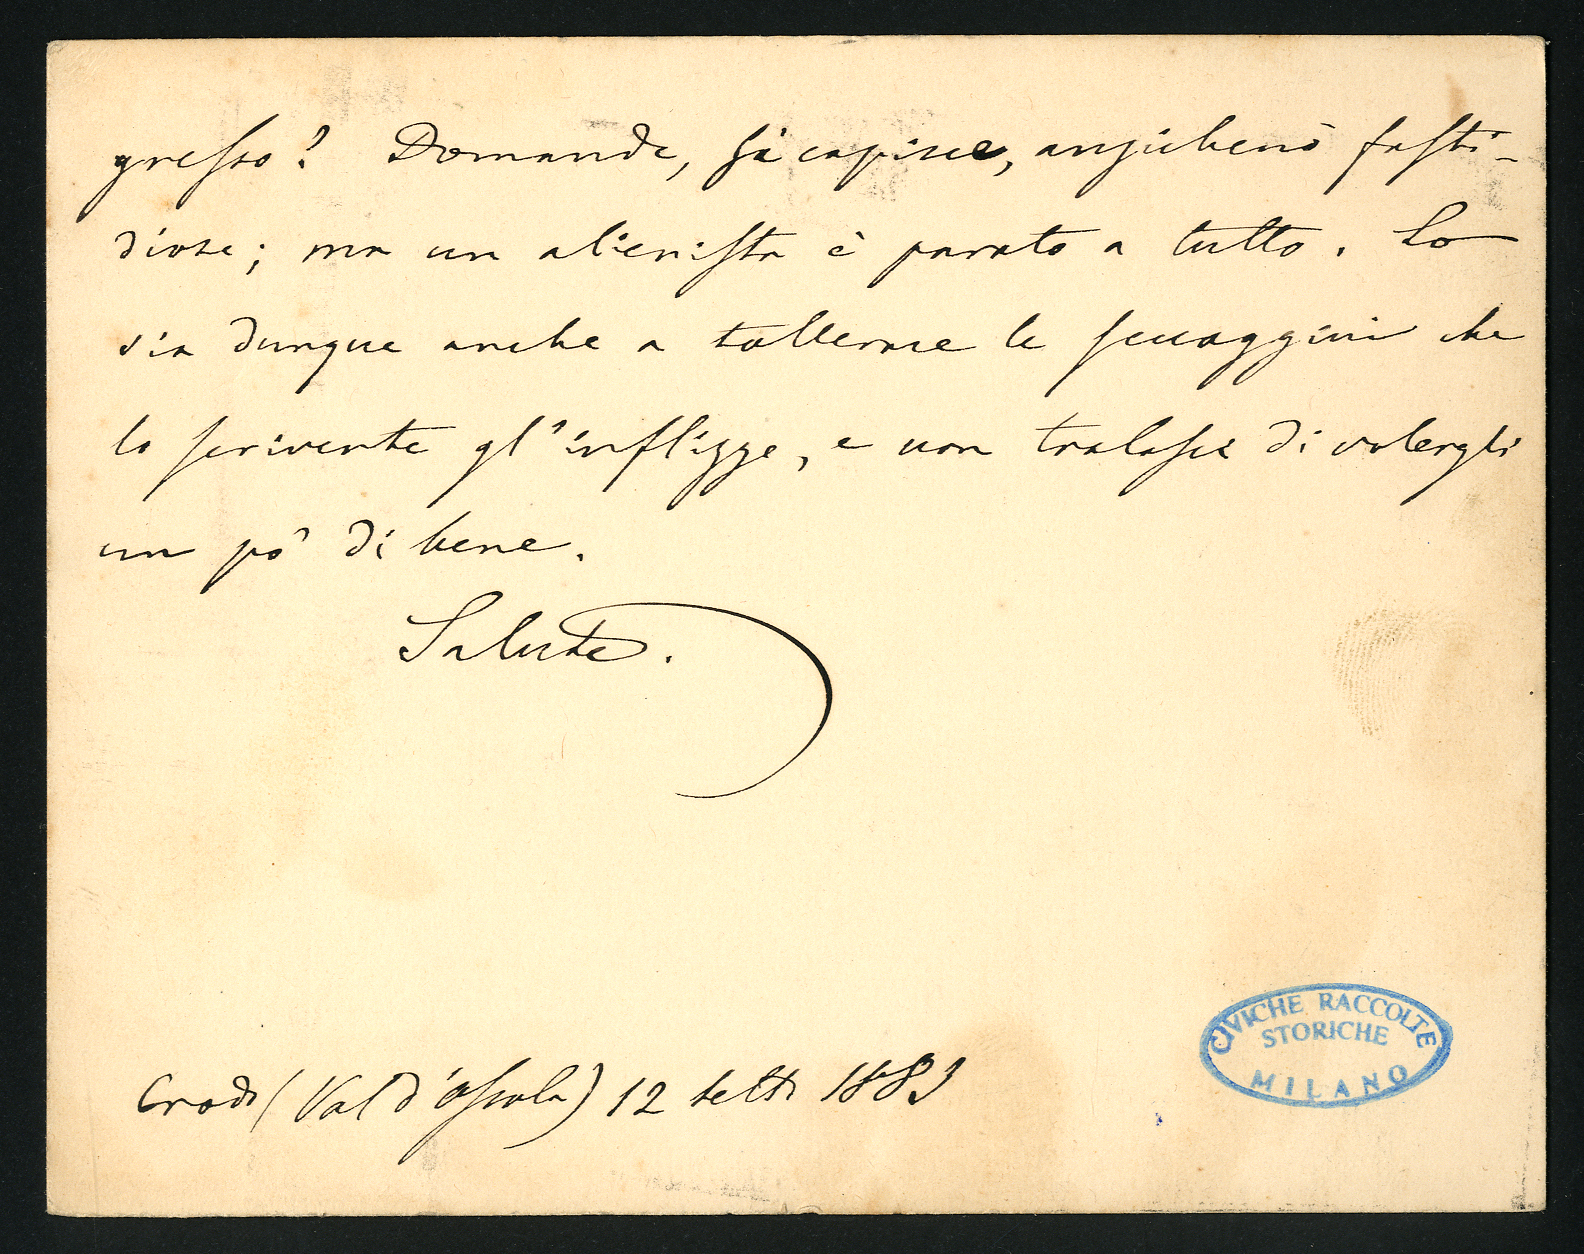 gresso? Domande, si capisce, anzichenò fasti-
diose; ma un alienista è parato a tutto. Lo
sia dunque anche a tollerare le seccaggini che
lo scrivente gl'infligge, e non tralasci di volergli
un pò di bene.
Salute.
Crodo (Val d'Ossola) 12 settb 1883
CIVICHE RACCOLTE
STORICHE
MILANO